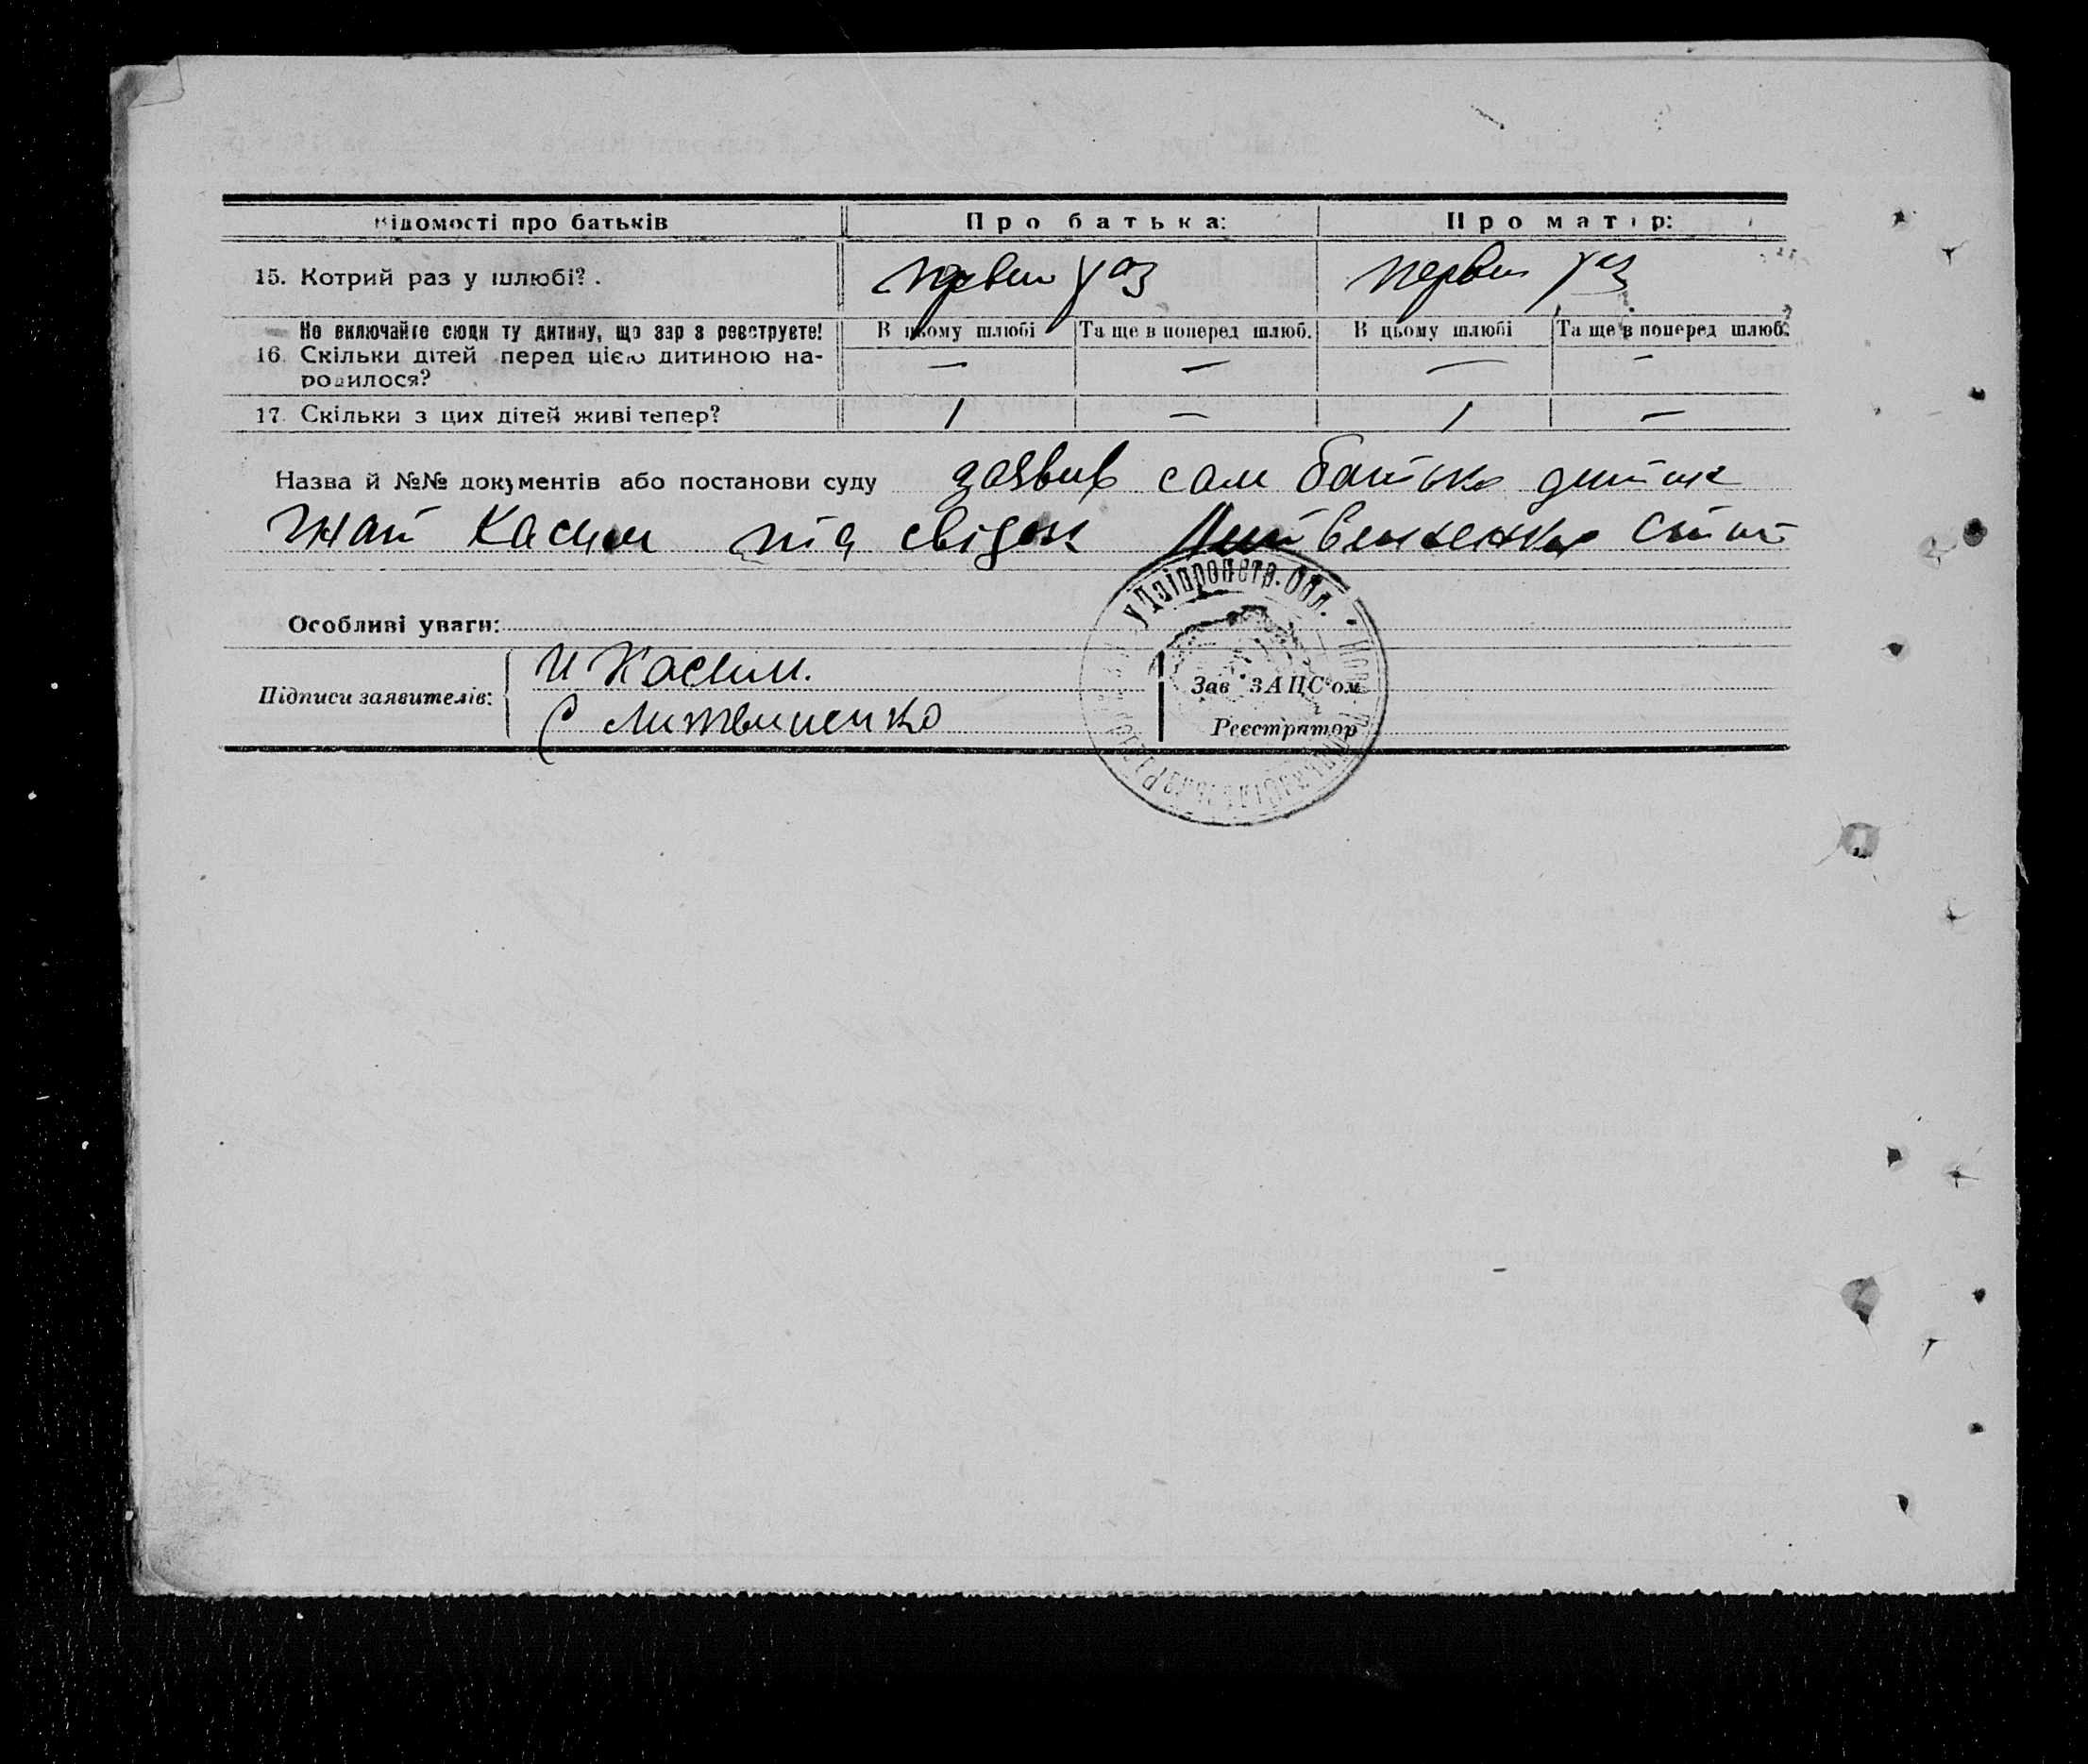 Відомості про батьків Про батька: Про матір:
15. Котрий раз у шлюбі? . первий раз первий раз
Не включайте сюди ту дитину, що зараз реєструєте! В цьому шлюбі Та ще в поперед шлюб. В цьому шлюбі Та ще в поперед шлюб.
16. Скільки дітей перед цією дитиною на- — — — —
родилося?
17. Скільки з цих дітей живі тепер? 1 — 1 —
Назва й №№ документів або постанови суду заявив сам батько
Касим та свідок Литвиненко
Особливі уваги:
Підписи заявителів: И Касим.
С Литвиненко
Зав ЗАЦС'ом
Реєстратор
у Дніпропетр. Обл.